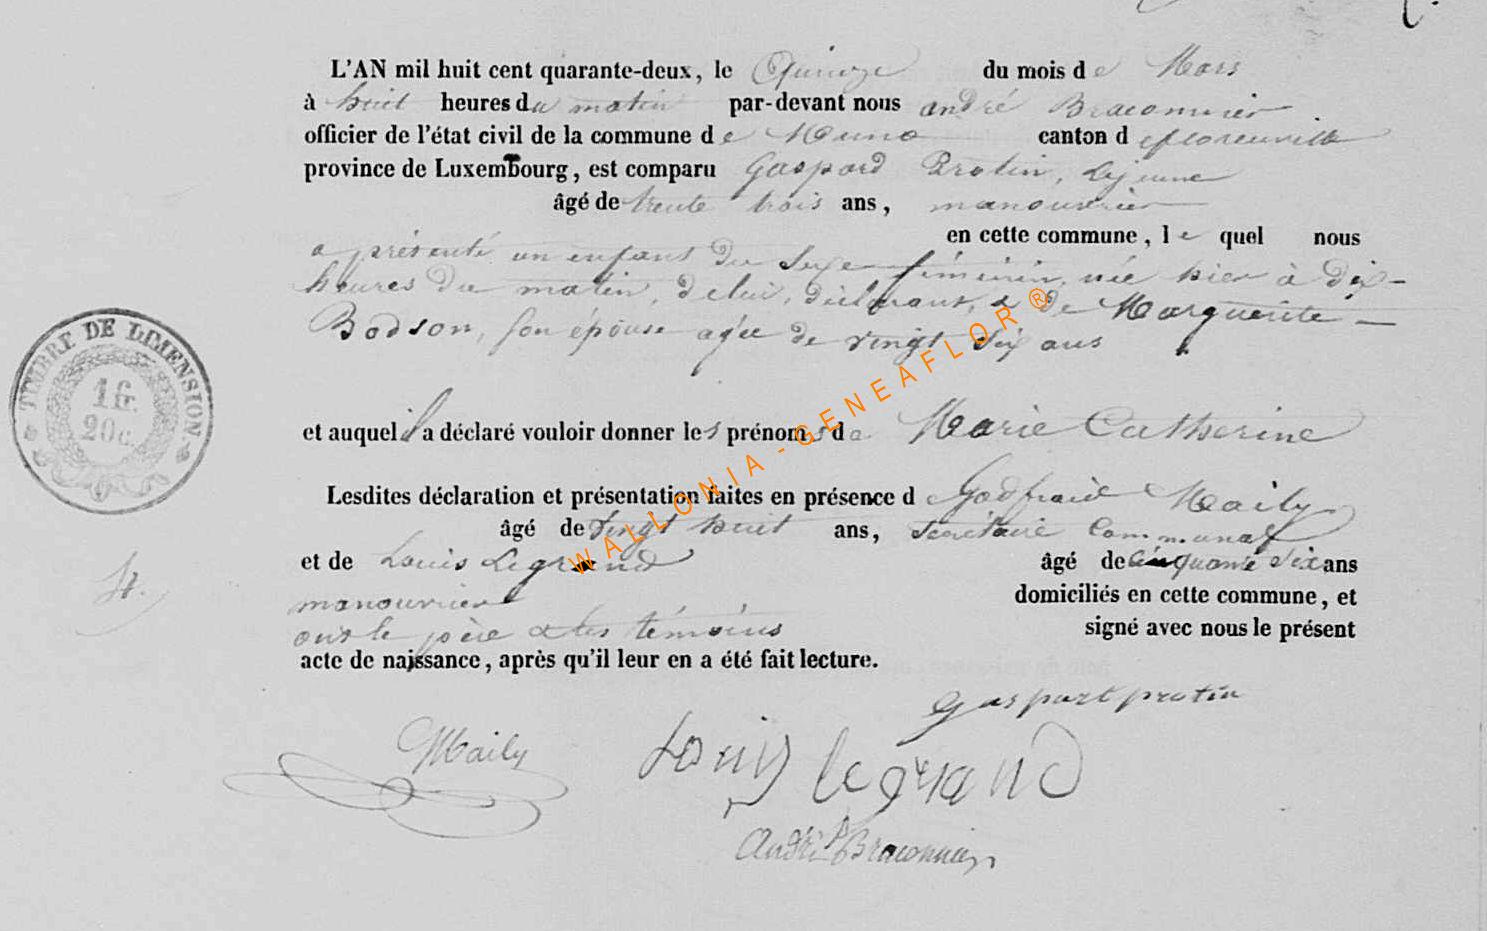 L'AN mil huit cent quarante-deux, le Quinze du mois de Mars
à huit heures du matin par-devant nous andré Braconnier
officier de l'état civil de la commune de Muno canton de florenville
province de Luxembourg, est comparu Gaspard Protin, Lejeune
âgé de trente trois ans, manouvrier
en cette commune, le quel nous
a présenté un enfant du Sexe féminin, née hier à dix
heures du matin, de lui, déclarant, & de Marguerite
Bodson, son épouse agée de vingt Six ans
et auquel il a déclaré vouloir donner les prénoms de Marie Catherine
Lesdites déclaration et présentation faites en présence de Godfroid Maily
âgé de vingt huit ans, Secrétaire Communal
et de Louis Legrand âgé de cinquante Six ans
manouvrier domiciliés en cette commune, et
ont le père & les témoins signé avec nous le présent
acte de naissance, après qu'il leur en a été fait lecture.
Gaspart protin
Maily
Louis legrand
André Braconnier
TIMBRE DE DIMENSION
1 fr.
20 c.
WALLONIA-GENEAFLOR®